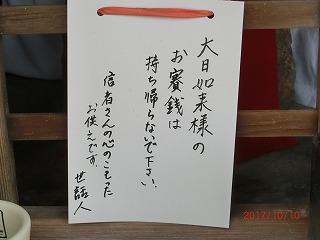 大日如来様の
お賽銭は
持ち帰らないで下さい。
信者さんの心のこもった
お供えです。
世話人
2017/10/10